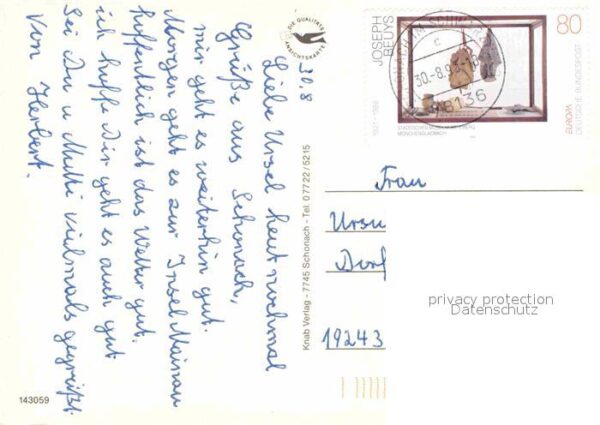 30.8
Liebe Ursel heut nochmal
Grüße aus Schonach,
mir geht es weiterhin gut.
Morgen geht es zur Insel Mainau
hoffentlich ist das Wetter gut.
ich hoffe Dir geht es auch gut
Sei Du u Mutti vielmals gegrüßt.
Von Herbert.
143059
DIE QUALITÄTS
ANSICHTSKARTE
Knab Verlag - 7745 Schonach - Tel. 0 77 22 / 5215
JOSEPH
BEUYS
80
1921 - 1986
EUROPA
DEUTSCHE BUNDESPOST
MÖNCHENGLADBACH
30.-8.9
78136
Frau
Ursu
Dorf
19243
privacy protection
Datenschutz